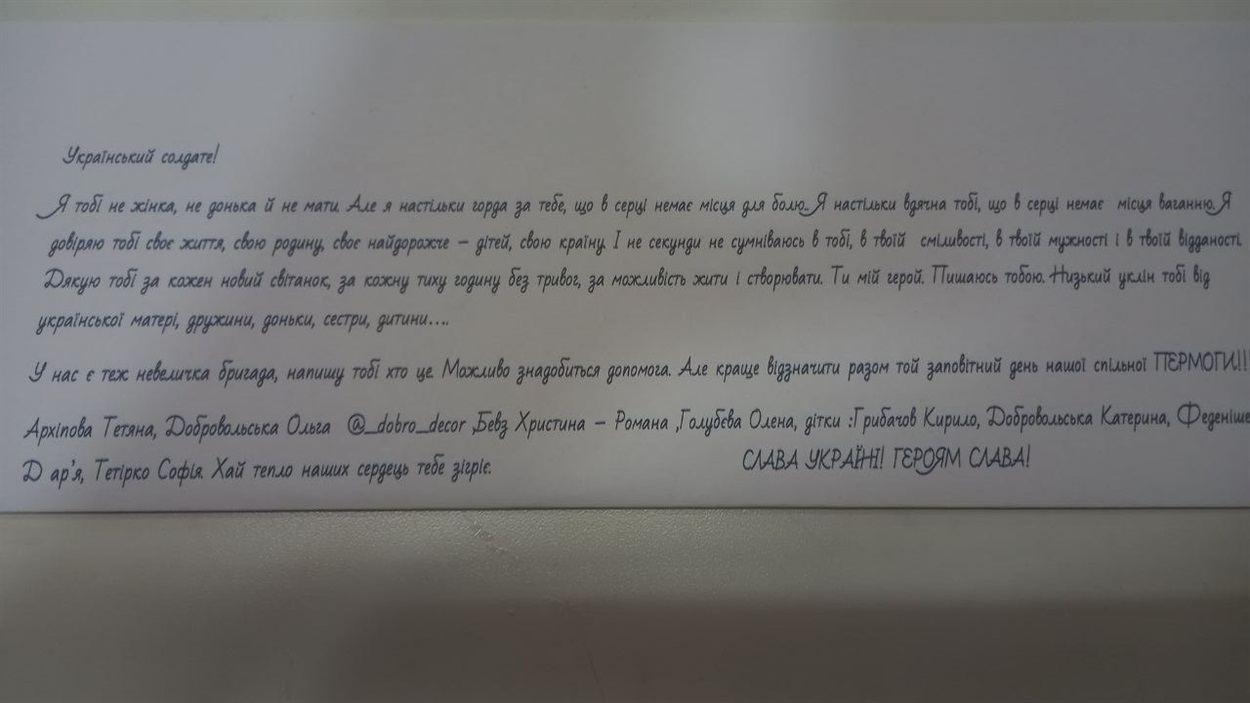 Український солдате!
Я тобі не жінка, не донька й не мати. Але я настільки горда за тебе, що в серці немає місця для болю. Я настільки вдячна тобі, що в серці немає місця ваганню. Я
довіряю тобі своє життя, свою родину, своє найдорожче – дітей, свою країну. І не секунди не сумніваюсь в тобі, в твоїй сміливості, в твоїй мужності і в твоїй відданості.
Дякую тобі за кожен новий світанок, за кожну тиху годину без тривог, за можливість жити і створювати. Ти мій герой. Пишаюсь тобою. Низький уклін тобі від
української матері, дружини, доньки, сестри, дитини....
У нас є теж невеличка бригада, напишу тобі хто це. Можливо знадобиться допомога. Але краще відзначити разом той заповітний день нашої спільної ПЕРМОГИ!!!
Архіпова Тетяна, Добровольська Ольга @_dobro_decor ,Бевз Христина – Романа ,Голубєва Олена, дітки :Грибачов Кирило, Добровольська Катерина, Феденіше
Д ар'я, Тетірко Софія. Хай тепло наших сердець тебе зігріє. СЛАВА УКРАЇНІ! ГЕРОЯМ СЛАВА!